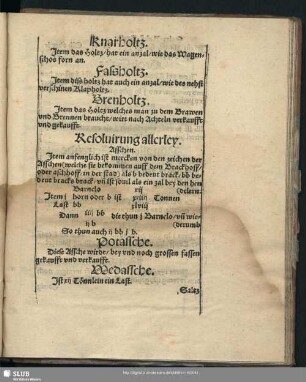 Knarholtz.
Item das Holtz/hat ein anzal/wie das Wagen-
schos forn an.
Fassholtz.
Item diss holtz hat auch ein anzal/wie des nehst
verschinen Klapholtz.
Brenholtz.
Item das Holtz welches man zu dem Brawen
vnd Brennen braucht/wirt nach Achteln verkaufft
vnd gekaufft.
Resoluirung allerley.
Asschen.
Item anfenglich ist mercken von den zeichen der
Asschen/welche sie bekommen auff dem Brackhoff/
oder aschhoff in der stad/als b bedeut brack/bb be-
deut bracks brack/vn ist souil als ein zal bey den hen
Barnclo xij (delern.
Item horn oder b ist xviij Tonnen
Last bb xlviij
Dann iij bb die thun Barnclo/vn wie-
ij b (derumb
So thun auch ij bb j b.
Potassche.
Diese Assche wirdt bey vnd nach grossen fassen
gekaufft vnd verkaufft.
Wedassche.
Ist xij Tönnlein ein Last.
Saltz
SLUB